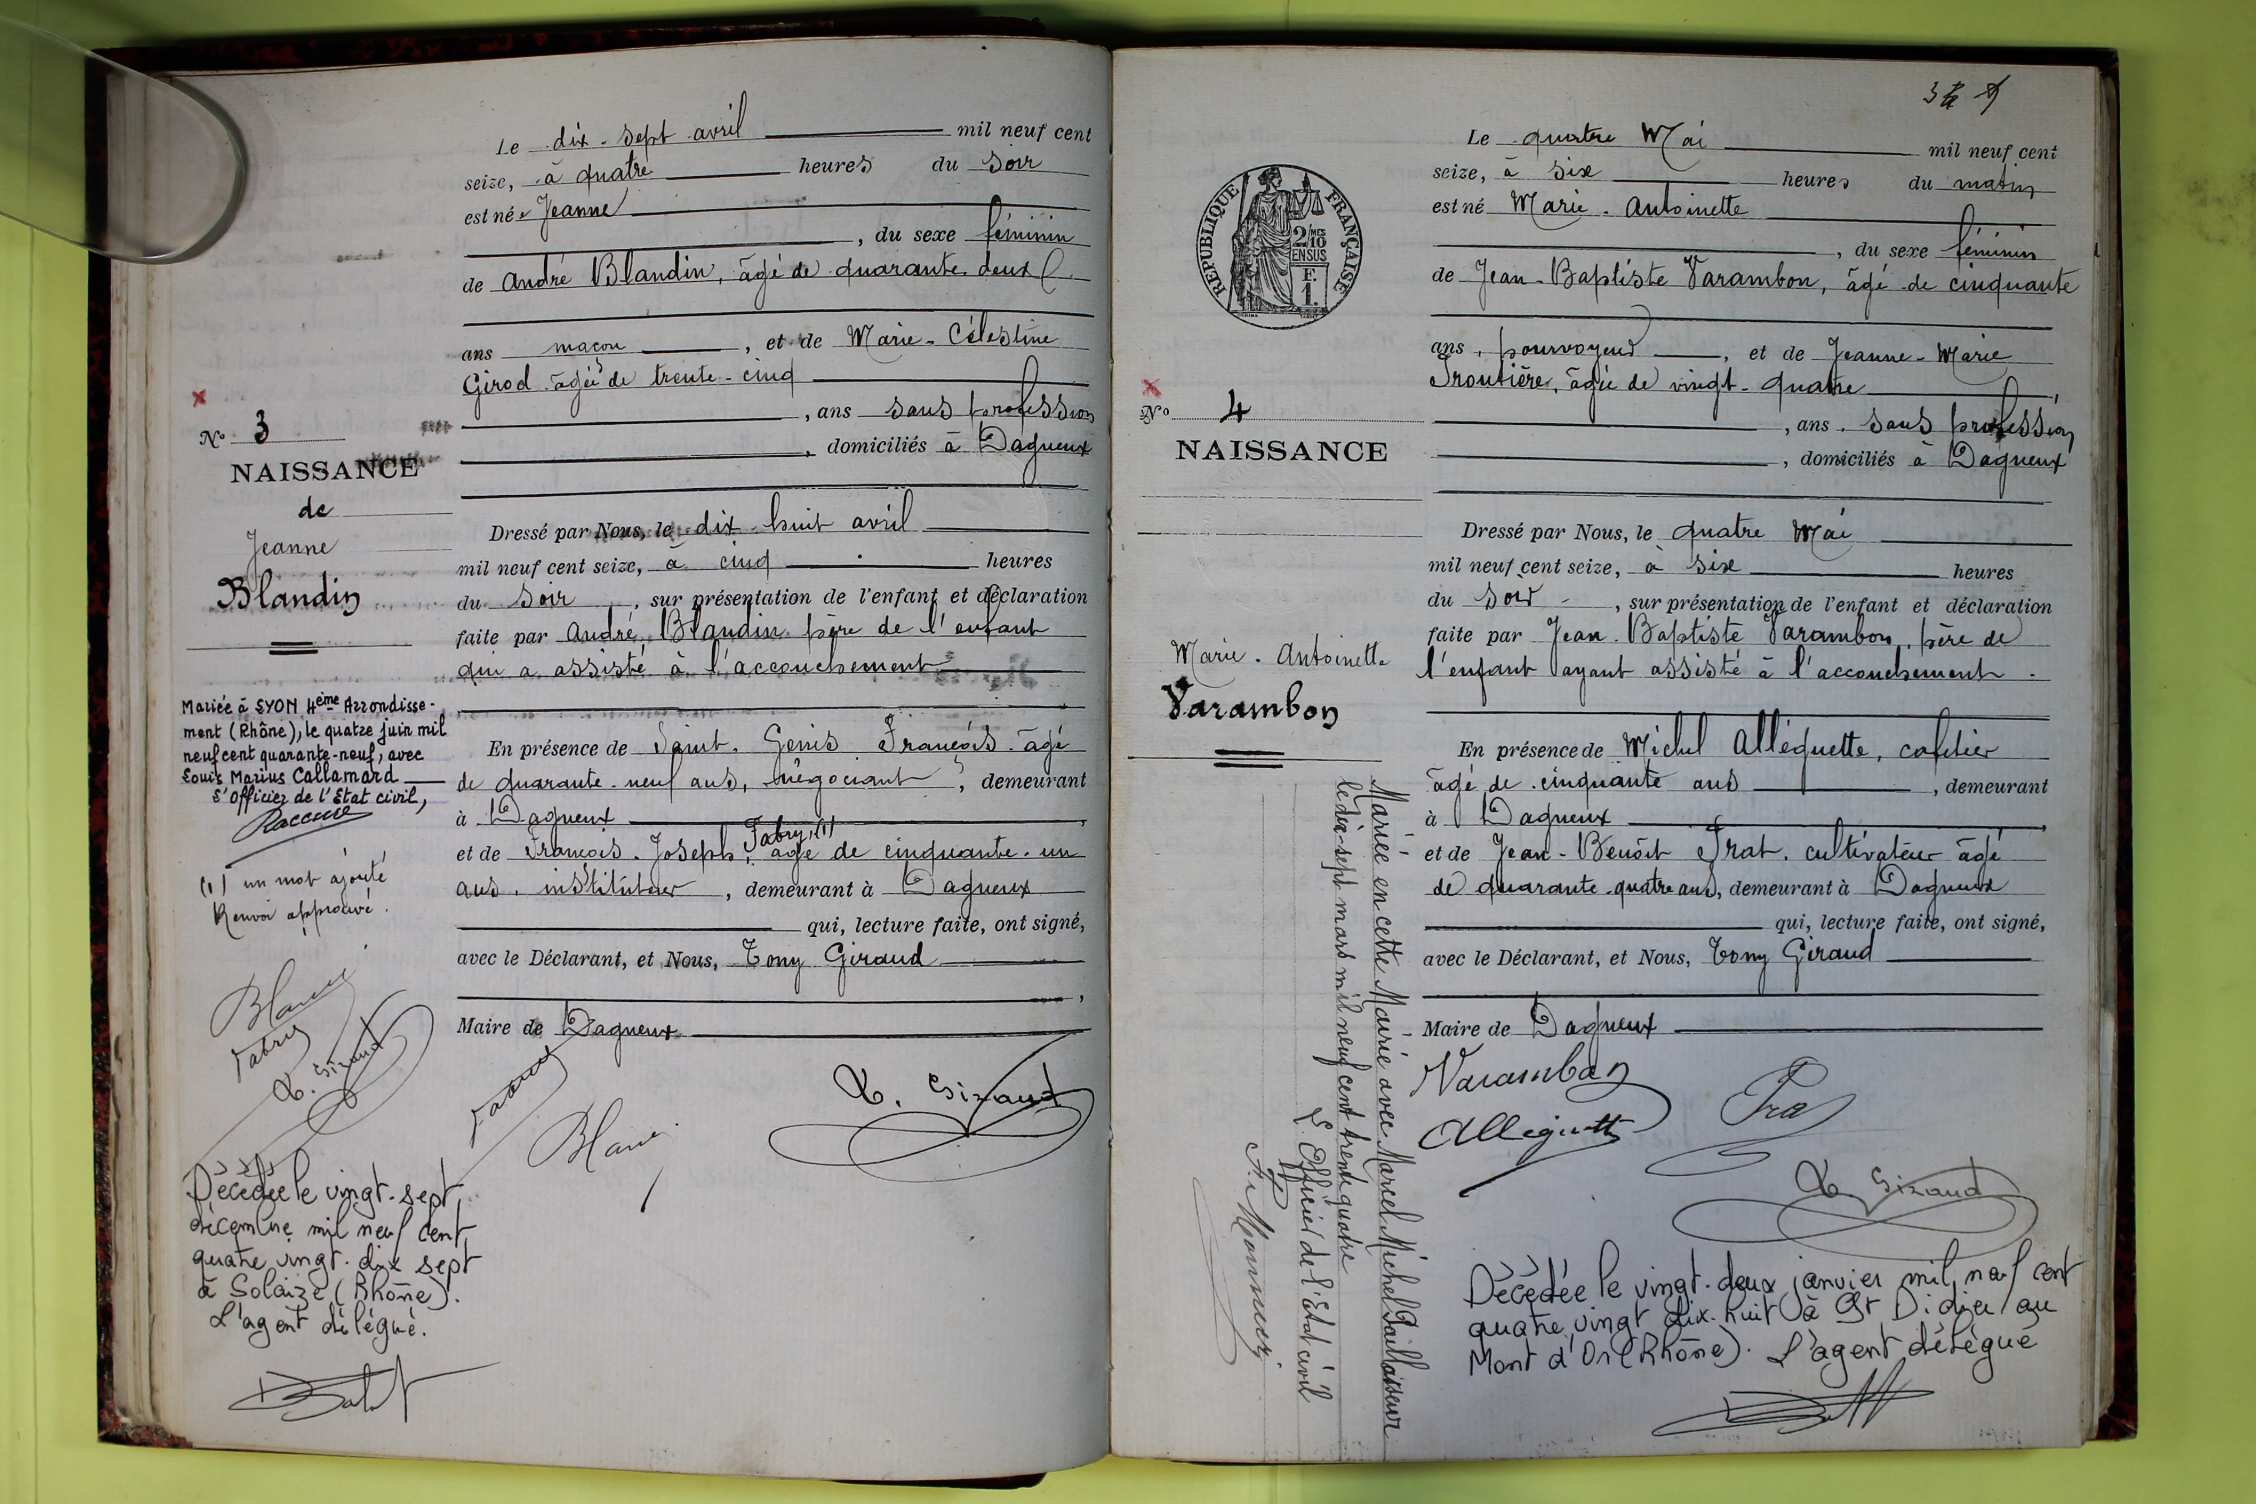 Le dix-sept avril mil neuf cent
seize, à quatre heures du soir
est née Jeanne
, du sexe féminin
de André Blandin, âgé de quarante-deux
ans maçon, et de Marie-Célestine
Girod âgée de trente-cinq
, ans sans profession
, domiciliés à Dagneux
Dressé par Nous, le dix-huit avril
mil neuf cent seize, à cinq heures
du soir, sur présentation de l'enfant et déclaration
faite par André Blandin père de l'enfant
qui a assisté à l'accouchement
En présence de Saint-Genis François âgé
de quarante-neuf ans, négociant, demeurant
à Dagneux
et de François-Joseph, Fabry, (1) âgé de cinquante-un
ans, instituteur, demeurant à Dagneux
qui, lecture faite, ont signé,
avec le Déclarant, et Nous, Tony Giraud
,
Maire de Dagneux
Fabry
T. Giraud
No 3
NAISSANCE
de
Jeanne
Blandin
Mariée à LYON 4ème Arrondisse-
ment (Rhône), le quatre juin mil
neuf cent quarante-neuf, avec
Louis Marius Callamard
L'Officier de l'Etat civil,
(1) un mot ajouté
Renvoi approuvé.
Fabry
T. Giraud
Décédée le vingt-sept
décembre mil neuf cent
quatre vingt-dix sept
à Solaize (Rhône).
L'agent délégué.
Le quatre Mai mil neuf cent
seize, à six heures du matin
est né Marie-Antoinette
, du sexe féminin
de Jean-Baptiste Varambon, âgé de cinquante
ans, pourvoyeur, et de Jeanne-Marie
Troutière, âgée de vingt-quatre
, ans. sans profession
, domiciliés à Dagneux
Dressé par Nous, le quatre Mai
mil neuf cent seize, à six heures
du soir, sur présentation de l'enfant et déclaration
faite par Jean-Baptiste Varambon, père de
l'enfant ayant assisté à l'accouchement.
En présence de Michel Alléguette, cafetier
âgé de cinquante ans, demeurant
à Dagneux
et de Jean-Benoît Prat, cultivateur âgé
de quarante-quatre ans, demeurant à Dagneux
qui, lecture faite, ont signé,
avec le Déclarant, et Nous, Tony Giraud
Maire de Dagneux
Varambon
Alleguette
Prat
T. Giraud
Décédée le vingt-deux janvier mil neuf cent
quatre vingt dix-huit à St Didier au
Mont d'Or (Rhône). L'agent délégué
RÉPUBLIQUE FRANÇAISE
2/10 MES
EN SUS
F.
1.
No 4
NAISSANCE
Marie-Antoinette
Varambon
Mariée en cette Mairie avec Marcel Michel Paillasseur
le dix-sept mars mil neuf cent trente quatre
L'Officier de l'Etat civil